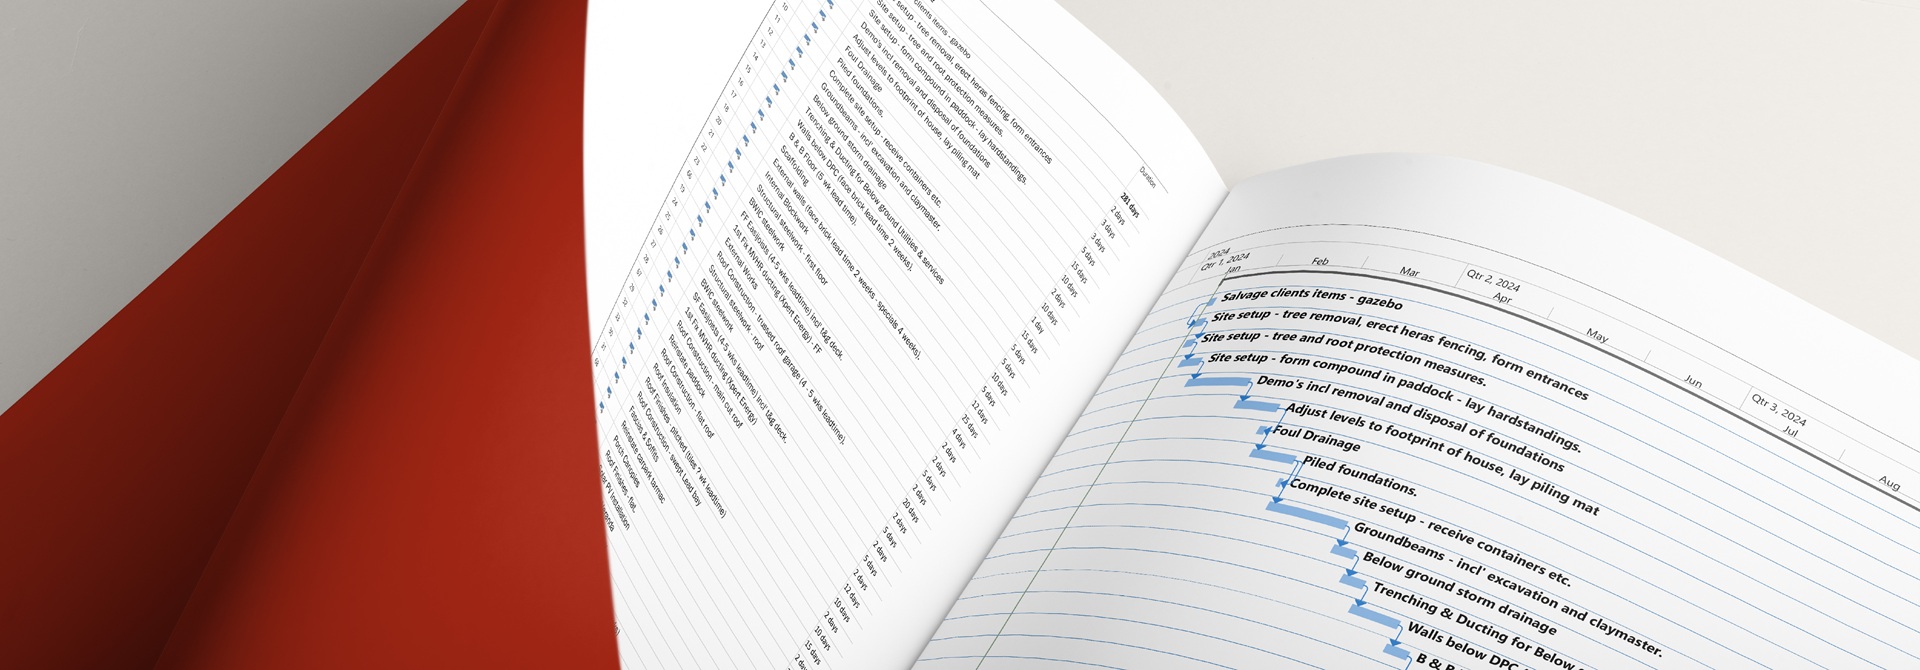 10
11
12
13
14
15
16
17
18
20
21
22
23
66
19
24
25
26
27
28
29
32
33
30
31
68
clients items - gazebo
Site setup - tree removal, erect heras fencing, form entrances
Site setup - tree and root protection measures.
Site setup - form compound in paddock - lay hardstandings.
Demo's incl removal and disposal of foundations
Adjust levels to footprint of house, lay piling mat
Foul Drainage
Piled foundations.
Complete site setup - receive containers etc.
Groundbeams - incl' excavation and claymaster.
Below ground storm drainage
Trenching & Ducting for Below ground Utilities & services
Walls below DPC (face brick lead time 2 weeks).
B & B Floor (5 wk lead time).
Scaffolding
External walls (face brick lead time 2 weeks - specials 4 weeks).
Internal Blockwork
Structural steelwork - first floor
BWIC steelwork
FF Easijoists (4-5 wks leadtime) incl' t&g deck.
1st Fix MVHR ducting (Xpert Energy) - FF
External Works
Roof Construction - trussed roof garage (4 - 5 wks leadtime).
Structural steelwork - roof
BWIC steelwork
SF Easijoists (4-5 wks leadtime) incl' t&g deck
1st Fix MVHR ducting (Xpert Energy)
Roof Construction - main cut roof
Reinstate paddock
Roof Construction - flat roof
Roof Insulation
Roof Finishes - pitched (tiles ? wk leadtime)
Roof Construction - swept Lead bay
Fascias & Soffits
Reinstate carpark tarmac
Porch Canopies
Roof Finishes - flat.
PV Installation
Duration
281 days
2 days
3 days
3 days
5 days
15 days
10 days
2 days
10 days
1 day
15 days
5 days
5 days
10 days
5 days
12 days
25 days
4 days
2 days
2 days
5 days
2 days
20 days
2 days
5 days
2 days
5 days
2 days
12 days
10 days
2 days
10 days
15 days
2 days
2024
Qtr 1, 2024
Qtr 2, 2024
Qtr 3, 2024
Jan
Feb
Mar
Apr
May
Jun
Jul
Aug
Salvage clients items - gazebo
Site setup - tree removal, erect heras fencing, form entrances
Site setup - tree and root protection measures.
Site setup - form compound in paddock - lay hardstandings.
Demo's incl removal and disposal of foundations
Adjust levels to footprint of house, lay piling mat
Foul Drainage
Piled foundations.
Complete site setup - receive containers etc.
Groundbeams - incl' excavation and claymaster.
Below ground storm drainage
Trenching & Ducting for Below
Walls below DPC
B & B